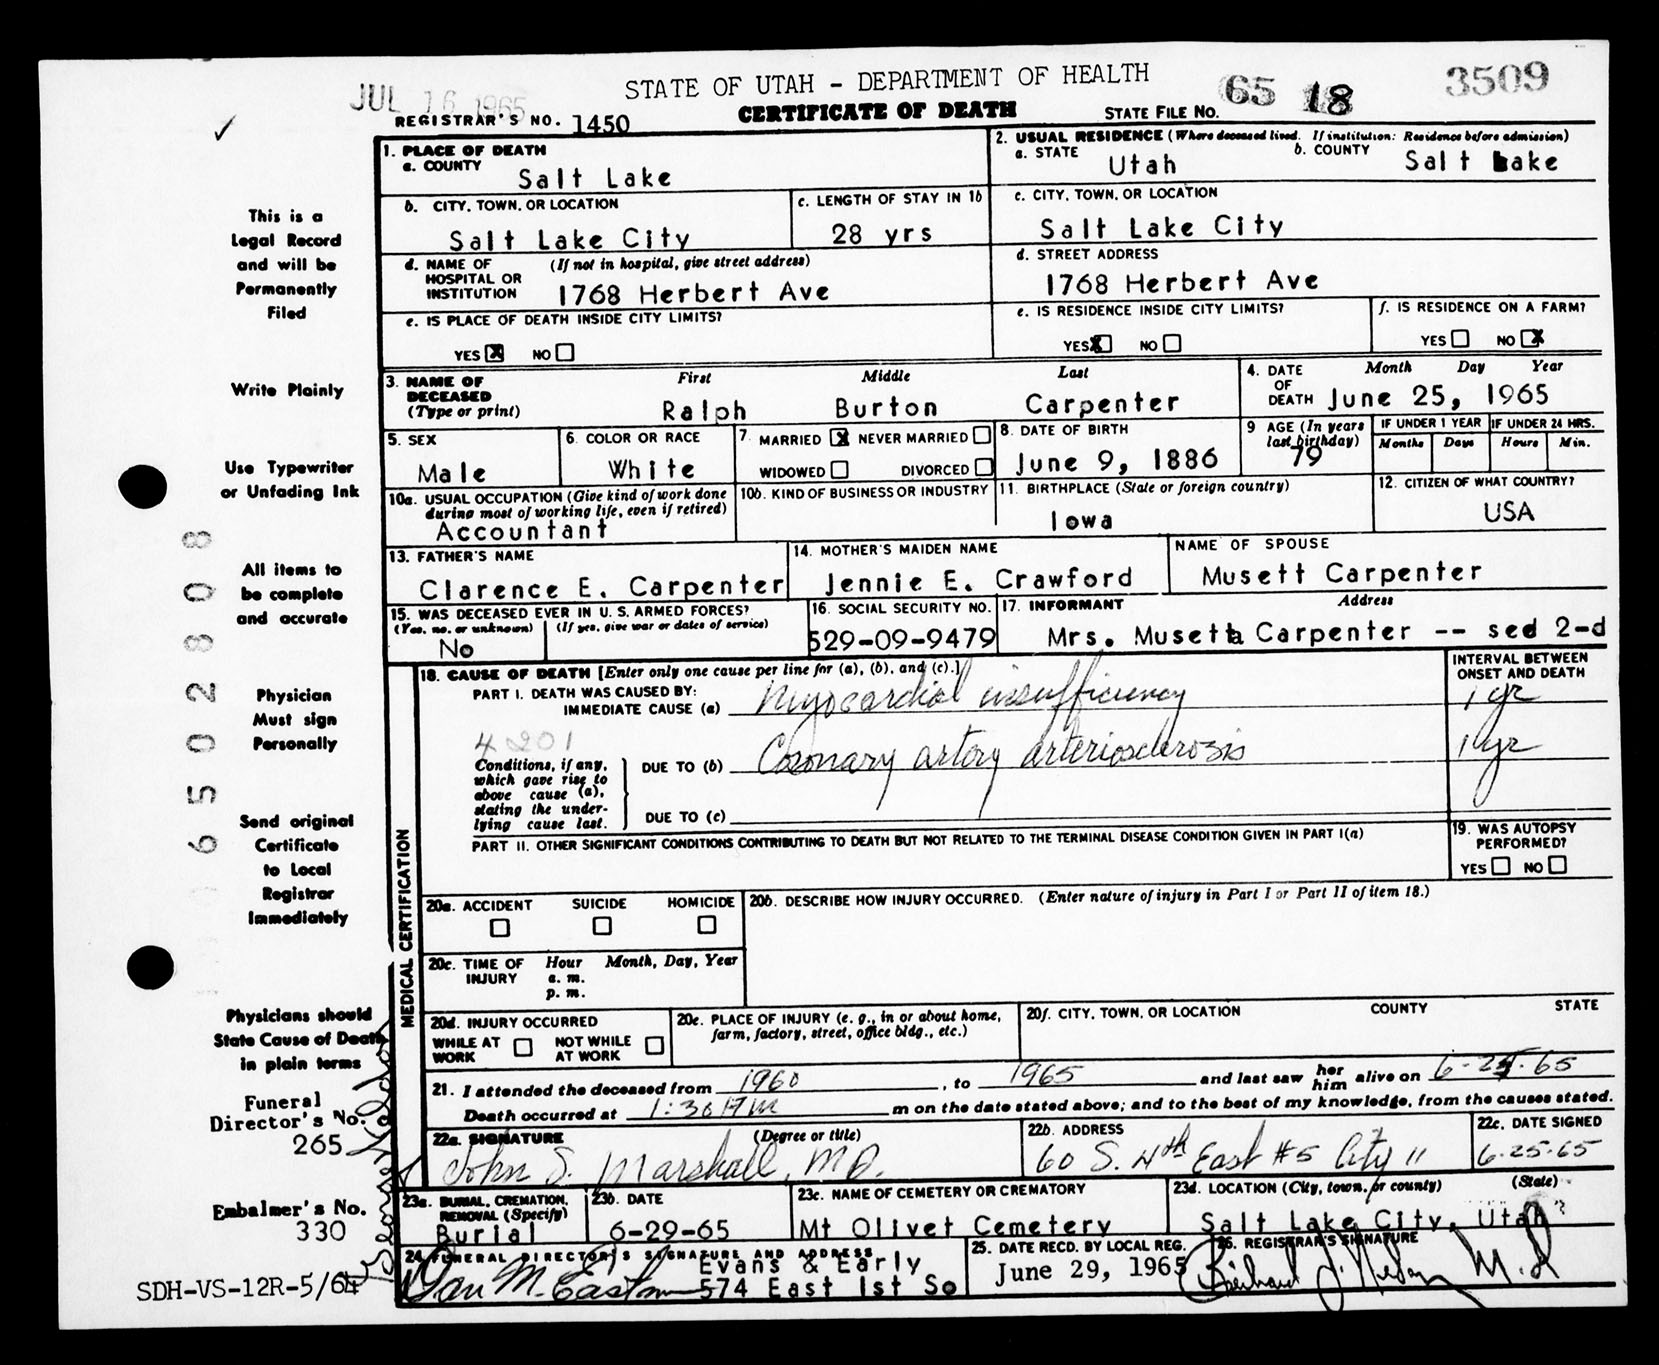 JUL 16 1965
STATE OF UTAH - DEPARTMENT OF HEALTH
CERTIFICATE OF DEATH
STATE FILE NO. 65 18 3509
REGISTRAR'S NO. 1450
✓
This is a
Legal Record
and will be
Permanently
Filed
Write Plainly
Use Typewriter
or Unfading Ink
All items to
be complete
and accurate
Physician
Must sign
Personally
Send original
Certificate
to Local
Registrar
Immediately
Physicians should
State Cause of Death
in plain terms
Funeral
Director's No.
265
Embalmer's No.
330
SDH-VS-12R-5/64
6502808
1. PLACE OF DEATH
a. COUNTY
Salt Lake
2. USUAL RESIDENCE (Where deceased lived. If institution: Residence before admission)
a. STATE Utah
b. COUNTY Salt Lake
b. CITY, TOWN, OR LOCATION
Salt Lake City
c. LENGTH OF STAY IN 1b
28 yrs
c. CITY, TOWN, OR LOCATION
Salt Lake City
d. NAME OF (If not in hospital, give street address)
HOSPITAL OR
INSTITUTION 1768 Herbert Ave
d. STREET ADDRESS
1768 Herbert Ave
e. IS PLACE OF DEATH INSIDE CITY LIMITS?
YES X NO
e. IS RESIDENCE INSIDE CITY LIMITS?
YES X NO
f. IS RESIDENCE ON A FARM?
YES NO X
3. NAME OF First Middle Last
DECEASED
(Type or print) Ralph Burton Carpenter
4. DATE Month Day Year
OF
DEATH June 25, 1965
5. SEX
Male
6. COLOR OR RACE
White
7. MARRIED X NEVER MARRIED
WIDOWED DIVORCED
8. DATE OF BIRTH
June 9, 1886
9 AGE (In years
last birthday)
79
IF UNDER 1 YEAR
Months Days
IF UNDER 24 HRS.
Hours Min.
10a. USUAL OCCUPATION (Give kind of work done
during most of working life, even if retired)
Accountant
10b. KIND OF BUSINESS OR INDUSTRY
11. BIRTHPLACE (State or foreign country)
Iowa
12. CITIZEN OF WHAT COUNTRY?
USA
13. FATHER'S NAME
Clarence E. Carpenter
14. MOTHER'S MAIDEN NAME
Jennie E. Crawford
NAME OF SPOUSE
Musett Carpenter
15. WAS DECEASED EVER IN U. S. ARMED FORCES?
(Yes, no, or unknown) (If yes, give war or dates of service)
No
16. SOCIAL SECURITY NO.
529-09-9479
17. INFORMANT Address
Mrs. Musetta Carpenter -- sed 2-d
MEDICAL CERTIFICATION
18. CAUSE OF DEATH [Enter only one cause per line for (a), (b), and (c).]
PART I. DEATH WAS CAUSED BY:
IMMEDIATE CAUSE (a) Myocardial insufficiency
INTERVAL BETWEEN
ONSET AND DEATH
1 yr
4201
Conditions, if any,
which gave rise to
above cause (a),
stating the under-
lying cause last.
DUE TO (b) Coronary artery arteriosclerosis
1 yr
DUE TO (c)
PART II. OTHER SIGNIFICANT CONDITIONS CONTRIBUTING TO DEATH BUT NOT RELATED TO THE TERMINAL DISEASE CONDITION GIVEN IN PART I(a)
19. WAS AUTOPSY
PERFORMED?
YES NO
20a. ACCIDENT SUICIDE HOMICIDE
20b. DESCRIBE HOW INJURY OCCURRED. (Enter nature of injury in Part I or Part II of item 18.)
20c. TIME OF Hour Month, Day, Year
INJURY a. m.
p. m.
20d. INJURY OCCURRED
WHILE AT WORK NOT WHILE AT WORK
20e. PLACE OF INJURY (e. g., in or about home,
farm, factory, street, office bldg., etc.)
20f. CITY, TOWN, OR LOCATION COUNTY STATE
21. I attended the deceased from 1960, to 1965 and last saw her him alive on 6-25-65
Death occurred at 1:30 m on the date stated above; and to the best of my knowledge, from the causes stated.
22a. SIGNATURE (Degree or title)
John S. Marshall, M.D.
22b. ADDRESS
60 S. 4th East #5 City 11
22c. DATE SIGNED
6-25-65
23a. BURIAL, CREMATION,
REMOVAL (Specify)
Burial
23b. DATE
6-29-65
23c. NAME OF CEMETERY OR CREMATORY
Mt Olivet Cemetery
23d. LOCATION (City, town, or county) (State)
Salt Lake City, Utah
24 FUNERAL DIRECTOR'S SIGNATURE AND ADDRESS
Evans & Early
Dan M. Eastman 574 East 1st So
25. DATE RECD. BY LOCAL REG.
June 29, 1965
26. REGISTRAR'S SIGNATURE
M.D.